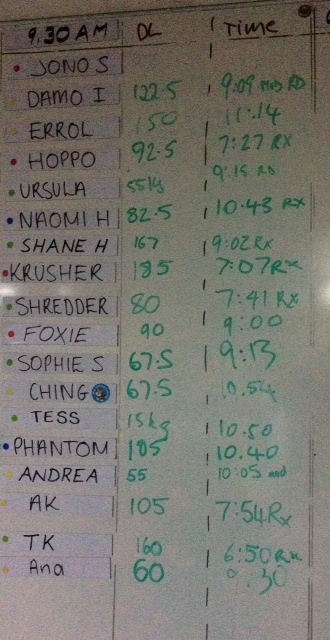 9.30 AM DL Time
JONO S
DAMO I 122.5 9:09
ERROL 150 11:14
HOPPO 92.5 7:27 RX
URSULA 55kg 9:15
NAOMI H 82.5 10:43 RX
SHANE H 167 9:02 RX
KRUSHER 185 7:07 RX
SHREDDER 80 7:41 RX
FOXIE 90 9:00
SOPHIE S 67.5 9:13
CHING 67.5 10.54
TESS 15kg 10.50
PHANTOM 185 10.40
ANDREA 55 10:05 mod
AK 105 7:54 Rx
TK 160 6:50 Rx
Ana 60 :30